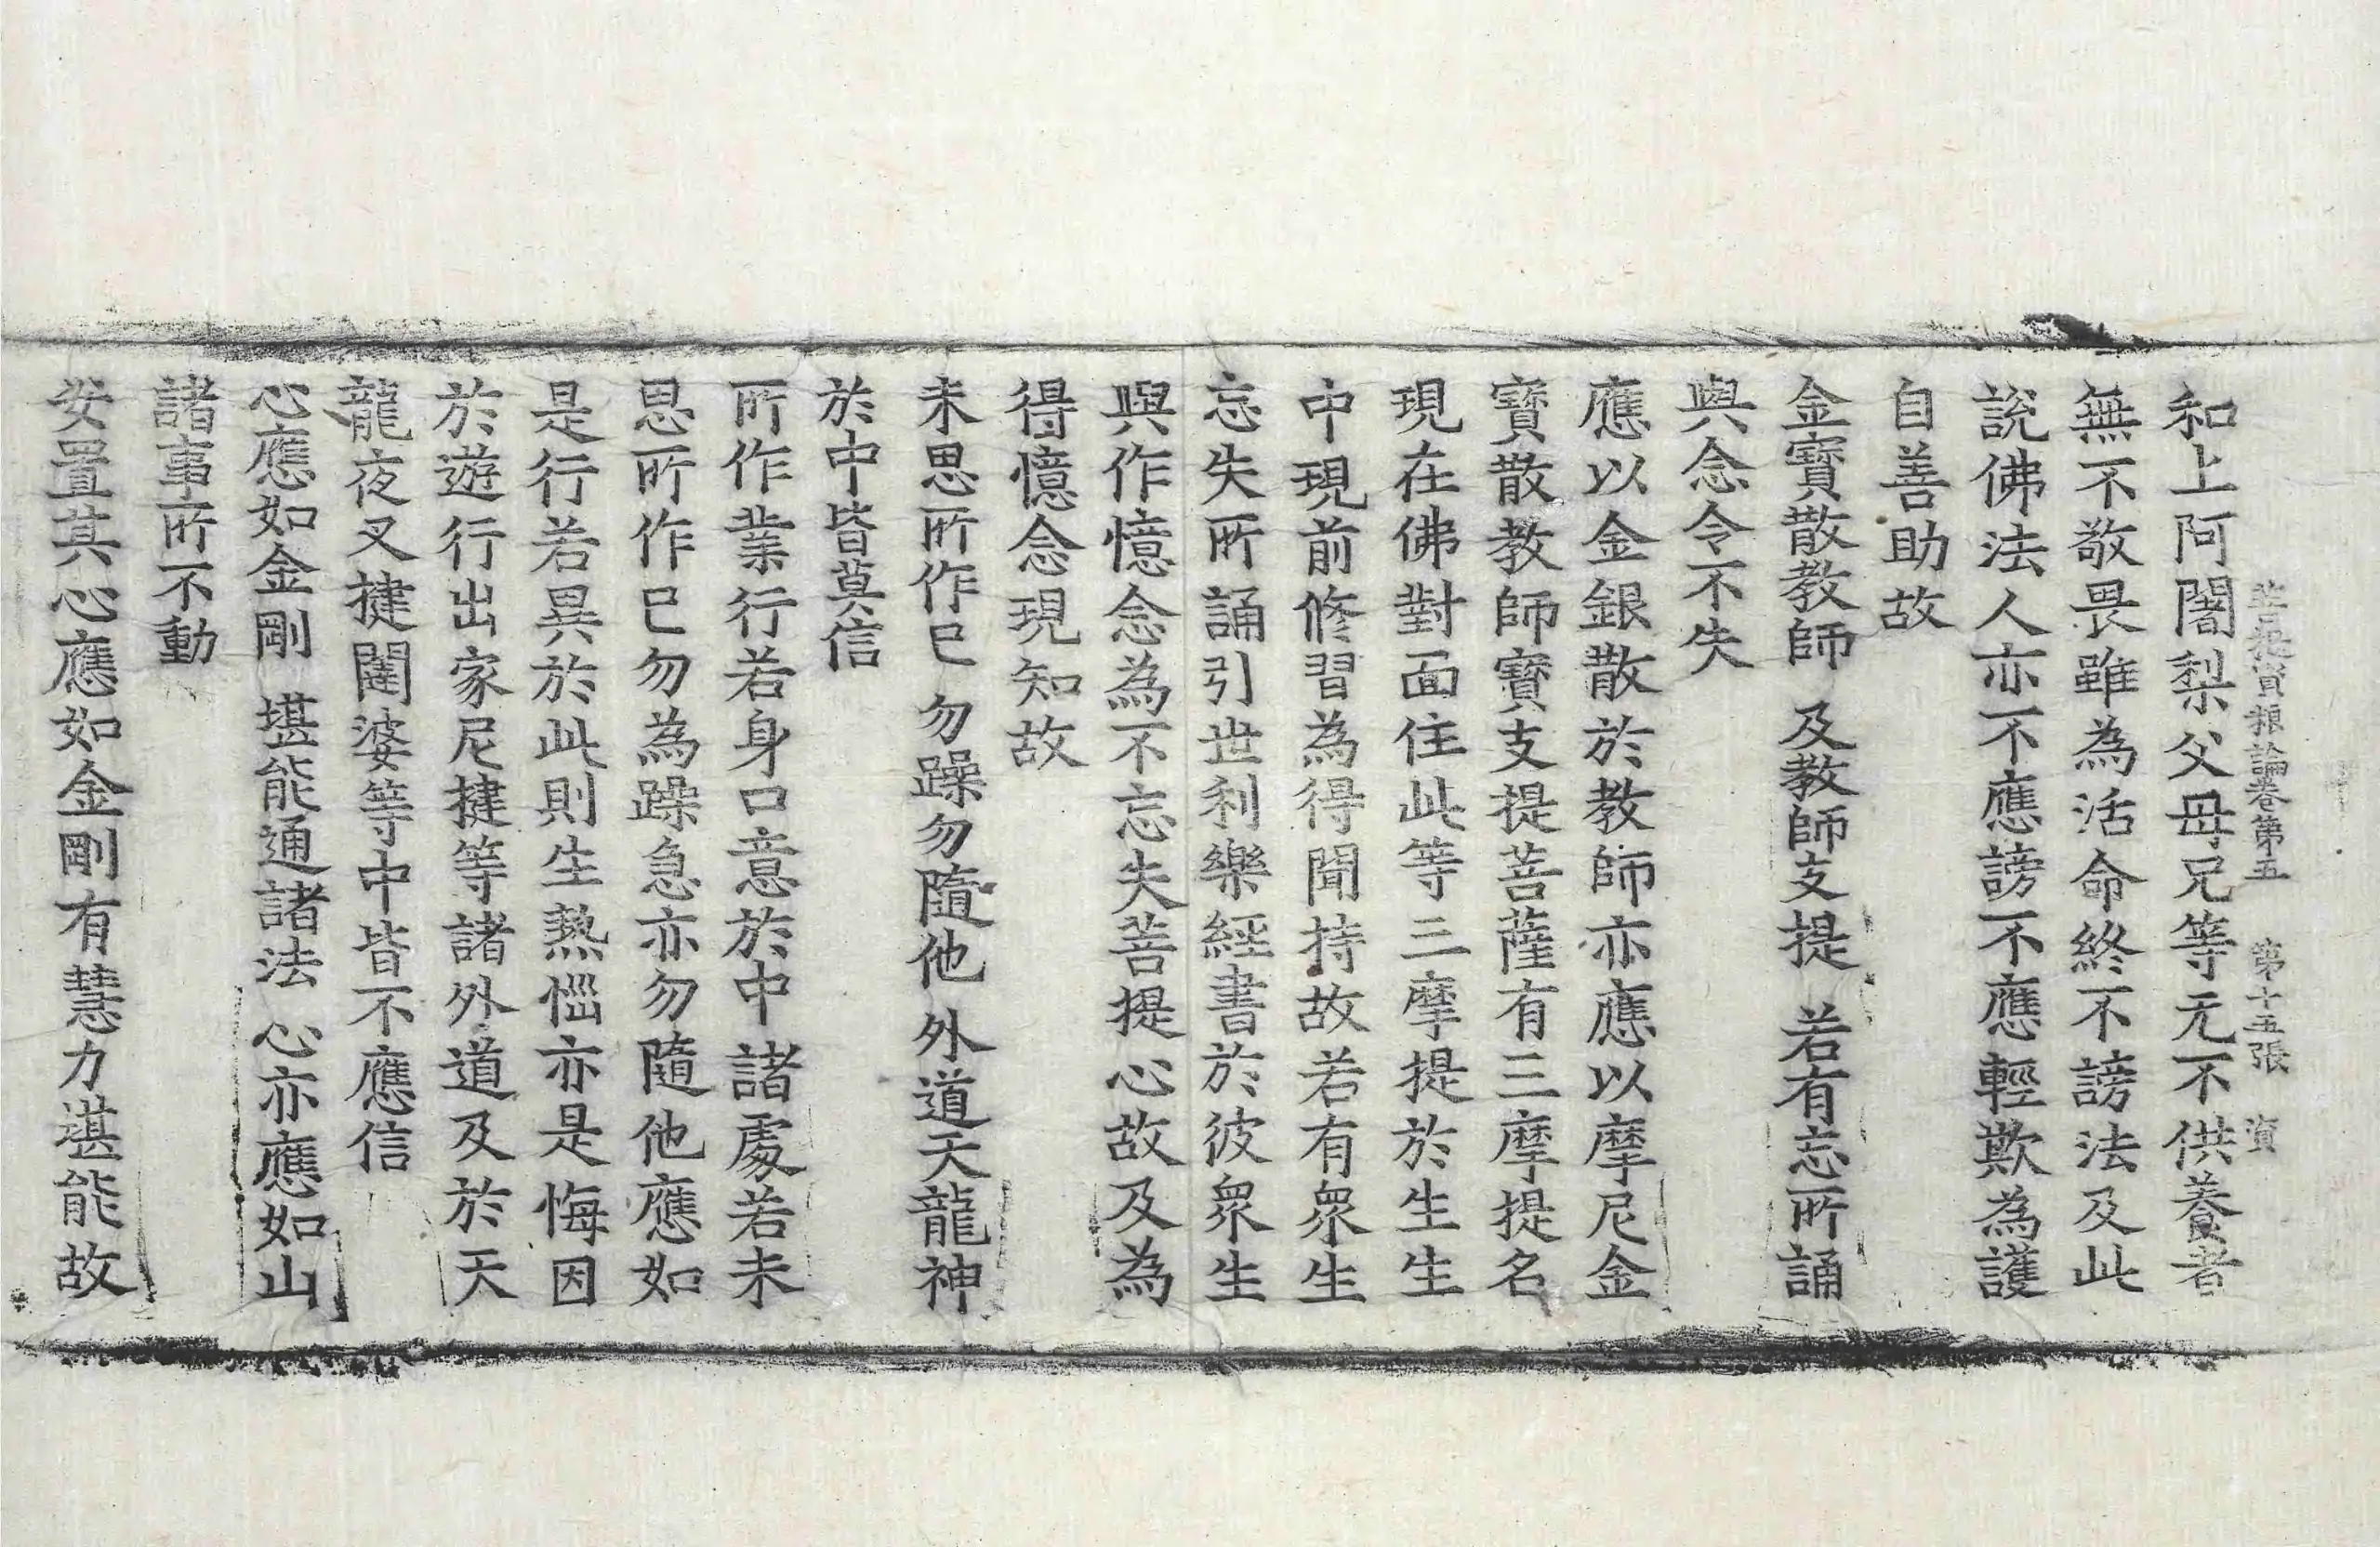 菩提資粮論卷第五　第十五張　資
和上阿闍梨父母兄等无不供養者
無不敬畏雖為活命終不謗法及此
說佛法人亦不應謗不應輕欺為護
自善助故
金寶散教師　及教師支提　若有忘所誦
與念令不失
應以金銀散於教師亦應以摩尼金
寶散教師寶支提菩薩有三摩提名
現在佛對面住此等三摩提於生生
中現前修習為得聞持故若有眾生
忘失所誦引世利樂經書於彼眾生
與作憶念為不忘失菩提心故及為
得憶念現知故
未思所作已　勿躁勿隨他　外道天龍神
於中皆莫信
所作業行若身口意於中諸處若未
思所作已勿為躁急亦勿隨他應如
是行若異於此則生熱惱亦是悔因
於遊行出家尼揵等諸外道及於天
龍夜叉揵闥婆等中皆不應信
心應如金剛　堪能通諸法　心亦應如山
諸事所不動
安置其心應如金剛有慧力堪能故